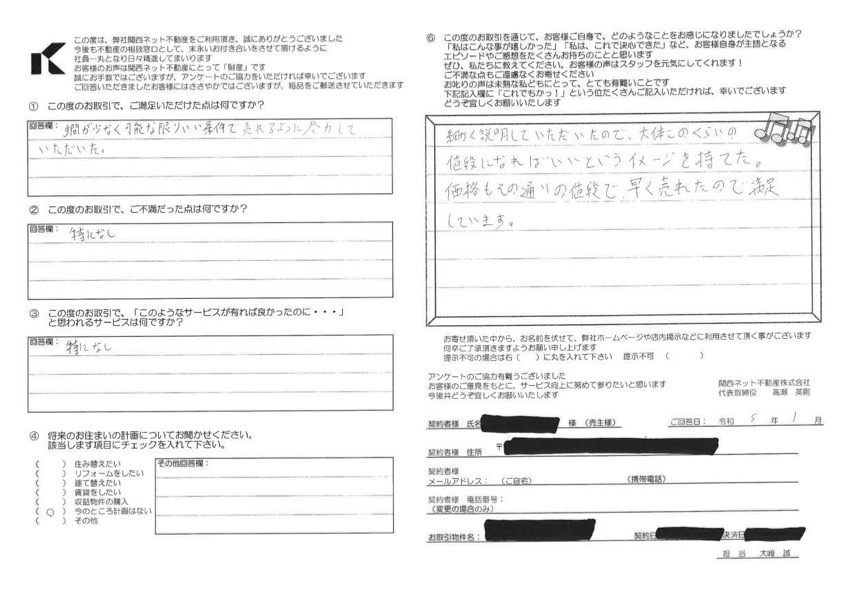 この度は、弊社関西ネット不動産をご利用頂き、誠にありがとうございました
今後も不動産の相談窓口として、末永いお付き合いをさせて頂けるように
社員一丸となり日々精進してまいります
お客様のお声は関西ネット不動産にとって「財産」です
誠にお手数ではございますが、アンケートのご協力をいただければ幸いでございます
ご回答いただきましたお客様にはささやかではございますが、粗品をご郵送させていただきます
① この度のお取引で、ご満足いただけた点は何ですか？
回答欄：
間が少なく可能な限りいい条件で売れるように尽力して
いただいた。
② この度のお取引で、ご不満だった点は何ですか？
回答欄： 特になし
③ この度のお取引で、「このようなサービスが有れば良かったのに・・・」
と思われるサービスは何ですか？
回答欄： 特になし
④ 将来のお住まいの計画についてお聞かせください。
該当します項目にチェックを入れて下さい。
（ ） 住み替えたい
（ ） リフォームをしたい
（ ） 建て替えたい
（ ） 賃貸をしたい
（ ） 収益物件の購入
（ ○ ） 今のところ計画はない
（ ） その他
その他回答欄：
⑥ この度のお取引を通じて、お客様ご自身で、どのようなことをお感じになりましたでしょうか？
「私はこんな事が嬉しかった」「私は、これで決心できた」など、お客様自身が主語となる
エピソードやご感想をたくさんお持ちのことと思います
ぜひ、私たちに教えてください。お客様の声はスタッフを元気にしてくれます！
ご不満な点もご遠慮なくお寄せください
お叱りの声は未熟な私どもにとって、とても有難いことです
下記記入欄に「これでもかっ！」という位たくさんご記入いただければ、幸いでございます
どうぞ宜しくお願いいたします
細かく説明していただいたので、大体このくらいの
値段になればいいというイメージを持てた。
価格もその通りの値段で、早く売れたので満足
しています。
お寄せ頂いた中から、お名前を伏せて、弊社ホームページや店内掲示などに利用させて頂く事がございます
何卒ご了承頂きますようお願い申し上げます
提示不可の場合は右（ ）に丸を入れて下さい 提示不可 （ ）
アンケートのご協力有難うございました
お客様のご意見をもとに、サービス向上に努めて参りたいと思います
今後共どうぞ宜しくお願いいたします
関西ネット不動産株式会社
代表取締役 高瀬 英剛
契約者様 氏名 様 （売主様） ご回答日： 令和 5 年 1 月
契約者様 住所 〒
契約者様
メールアドレス： （ご自宅） （携帯電話）
契約者様 電話番号：
（変更の場合のみ）
お取引物件名： 契約日 決済日
担 当 大崎 誠